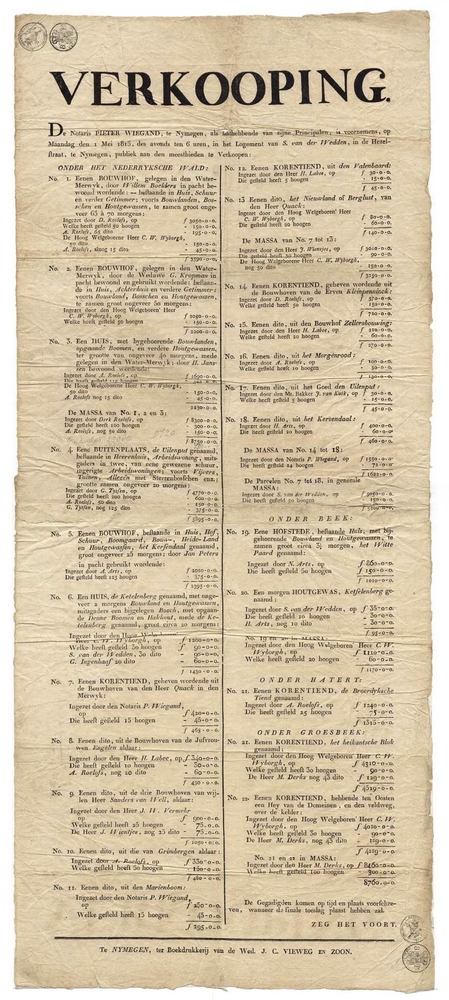 VERKOOPING.
De Notaris PIETER WIEGAND, te Nymegen, als lasthebbende van zijne Principalen, is voornemens, op
Maandag den 1 Mei 1815, des avonds ten 6 uren, in het Logement van S. van der Wedden, in de Hezel-
straat, te Nymegen, publiek aan den meestbieden te Verkoopen:
ONDER HET NEDERRYKSCHE WALD:
No. 1. Eenen BOUWHOF, gelegen in den Water-
Merwyk, door Willem Boekders in pacht be-
woond wordende: — bestaande in Huis, Schuur
en verder Getimmer; voorts Bouwlanden, Bos-
schen en Houtgewassen, te zamen groot onge-
veer 65 à 70 morgens:
Ingezet door D. Roelofs, op f 3050-0-0.
Welke heeft gesteld 50 hoogen - 150-0-0.
A. Roelofs, 65 dito - 195-0-0.
De Hoog Welgeborene Heer C. W. Wyborgh,
50 dito - 150-0-0.
A. Roelofs, nog 15 dito - 45-0-0.
f 3590-0-0.
No. 2. Eenen BOUWHOF, gelegen in den Water-
Merwyk, door de Weduwe G. Kropman in
pacht bewoond en gebruikt wordende: bestaan-
de in Huis, Achterhuis en verdere Getimmer;
voorts Bouwland, Bosschen en Houtgewassen,
te zamen groot ongeveer 50 morgens:
Ingezet door den Hoog Welgeboren Heer
C. W. Wyborgh, op f 2050-0-0.
Welke heeft gesteld 50 hoogen - 150-0-0.
f 2200-0-0.
No. 3. Een HUIS, met bygehoorende Bouwlanden,
opgaande Boomen, en verdere Houtgewassen,
ter grootte van ongeveer 40 morgens, mede
gelegen in den Water-Merwyk; door H. Jans-
sen bewoond wordende:
Ingezet door A. Roelofs, op f 1650-0-0.
De Hoog Welgeborene Heer C. W. Wyborgh,
50 dito - 150-0-0.
A. Roelofs nog 15 dito - 45-0-0.
De MASSA van No. 1, 2 en 3:
Ingezet door Derk Roelofs, op f 8300-0-0.
Die heeft gesteld 100 hoogen - 300-0-0.
A. Roelofs, nog 50 dito - 150-0-0.
f 8750-0-0.
No. 4. Eene BUITENPLAATS, de Uilenput genaamd,
bestaande in Heerenhuis, Arbeidswoning, mits-
gaders in twee, van eene gewezene schuur,
Tuinen, Alleen met Sterrenbosschen enz.
grootte zamen ongeveer 20 morgens:
Ingezet door G. Tyssen, op f 4770-0-0.
Die heeft gesteld 200 hoogen - 600-0-0.
A. Roelofs, 50 dito - 150-0-0.
G. Tyssen, nog 125 dito - 375-0-0.
f 5895-0-0.
No. 5. Eenen BOUWHOF, bestaande in Huis, Hof,
Schuur, Boomgaard, Bouw-, Heide-Land
en Houtgewassen, het Kersfendaal genaamd,
groot ongeveer 25 morgens: door Jan Peters
in pacht gebruikt wordende:
Ingezet door A. Arts, op f 2020-0-0.
Die heeft gesteld 125 hoogen - 375-0-0.
f 2395-0-0.
No. 6. Een HUIS, de Ketelenberg genaamd, met onge-
veer 2 morgens Bouwland en Houtgewassen,
mitsgaders een bijgelegen Bosch, met opgaan-
de Denne Boomen en Hakhout, mede de Ke-
telenberg genaamd, groot circa 20 morgens:
Ingezet door den Hoog Welgeboren
Heer C. W. Wyborgh, op f 1200-0-0.
Welke heeft gesteld 30 hoogen - 90-0-0.
S. van der Wedden, 30 dito - 90-0-0.
G. Ingenhoof 20 dito - 60-0-0.
No. 7. Eenen KORENTIEND, geheven wordende uit
de Bouwhoven van den Heer Quack in den
Merwyk:
Ingezet door den Notaris P. Wiegand,
op f 420-0-0.
Die heeft gesteld 15 hoogen - 45-0-0.
f 465-0-0.
No. 8. Eenen dito, uit de Bouwhoven van de Jufvrou-
wen Engelen aldaar:
Ingezet door den Heer H. Labee, op f 340-0-0.
Die heeft gesteld 10 hoogen - 30-0-0.
A. Roelofs, nog 20 dito - 60-0-0.
No. 9. Eenen dito, uit de Bouwhoven van wij-
len Heer Sanders van Well, aldaar:
Ingezet door den Heer J. W. Vermehr
op f 500-0-0.
Welke heeft gesteld 25 hoogen - 75-0-0.
De Heer J. Wientjes, nog 25 dito - 75-0-0.
No. 10. Eenen dito, uit die van Grimbergen aldaar:
Ingezet door A. Roelofs, op f 330-0-0.
Welke heeft gesteld 50 hoogen - 150-0-0.
f 480-0-0.
No. 11. Eenen dito, uit den Marienboom:
Ingezet door den Notaris P. Wiegand,
op f 250-0-0.
Welke heeft gesteld 15 hoogen - 45-0-0.
f 295-0-0.
No. 12. Eenen KORENTIEND, uit den Valenboard:
Ingezet door den Heer H. Labee, op f 30-0-0.
Die gesteld heeft 5 hoogen - 15-0-0.
f 45-0-0.
No. 13 Eenen dito, het Nieuwland of Berglust, van
den Heer Quack:
Ingezet door den Hoog Welgeboren Heer
C. W. Wyborgh, op f 80-0-0.
Die gesteld heeft 20 hoogen - 60-0-0.
f 140-0-0.
De MASSA van No. 7 tot 13:
Ingezet door den Heer J. Wientjes, op f 3010-0-0.
Die heeft gesteld 30 hoogen - 90-0-0.
De Hoog Welgeborene Heer C. W. Wyborgh,
nog 50 dito - 150-0-0.
f 3250-0-0.
No. 14. Eenen KORENTIEND, geheven wordende uit
de Bouwhoven van de Erven Kleinpenninck:
Ingezet door D. Roelofs, op f 570-0-0.
Welke heeft gesteld 50 hoogen - 150-0-0.
No. 15. Eenen dito, uit den Bouwhof Zellersheuwing:
Ingezet door den Heer H. Labee, op
Welke heeft gesteld 20 hoogen - 60-0-0.
No. 16. Eenen dito, uit het Morgenrood:
Ingezet door A. Roelofs, op f 100-0-0.
Welke heeft gesteld 10 hoogen - 30-0-0.
No. 17. Eenen dito, uit het Goed den Uilenput:
Ingezet door den Mr. Bakker J. van Kuik, op f 30-0-0.
Welke heeft gesteld 5 hoogen - 15-0-0.
f 45-0-0.
No. 18. Eenen dito, uit het Kersendaal:
Ingezet door H. Arts, op f 400-0-0.
Die heeft gesteld 20 hoogen - 60-0-0.
f 460-0-0.
De MASSA van No. 14 tot 18:
Ingezet door den Notaris P. Wiegand, op f 1550-0-0.
Die heeft gesteld 24 hoogen - 72-0-0.
f 1622-0-0.
De Parcelen No. 7 tot 18, in generale
MASSA:
Ingezet door S. van der Wedden, op f 5050-0-0.
Die heeft gesteld 50 hoogen - 150-0-0.
ONDER BEEK:
No. 19. Eene HOFSTEDE, bestaande Huis, met bij-
gehoorende Bouwland en Houtgewassen, te
zamen groot circa 3½ morgen, het Witte
Paard genaamd:
Ingezet door N. Arts, op f 860-0-0.
Die heeft gesteld 50 hoogen - 150-0-0.
f 1010-0-0.
No. 20. Een morgen HOUTGEWAS, Ketselenberg ge-
naamd:
Ingezet door S. van der Wedden, op f 35-0-0.
Die heeft gesteld 10 hoogen - 30-0-0.
H. Arts, nog 10 dito - 30-0-0.
f 95-0-0.
No. 19 en 20 in MASSA:
Ingezet door den Hoog Welgeboren Heer C. W.
Wyborgh, op f 1110-0-0.
Welke heeft gesteld 20 hoogen - 60-0-0.
f 1170-0-0.
ONDER HATERT:
No. 21. Eenen KORENTIEND, de Broerdyksche
Tiend genaamd:
Ingezet door A. Roelofs, op f 1240-0-0.
Die heeft gesteld 25 hoogen - 75-0-0.
f 1315-0-0.
ONDER GROESBEEK:
No. 21. Eenen KORENTIEND, het heikantsche Blok
genaamd:
Ingezet door den Hoog Welgeboren Heer C. W.
Wyborgh, op f 4310-0-0.
Welke heeft gesteld 30 hoogen - 90-0-0.
De Heer M. Derks nog 43 dito - 129-0-0.
f 4529-0-0.
No. 22. Eenen KORENTIEND, hebbende ten Oosten
een Hey van de Domeinen, en den veldweg,
over de kelder:
Ingezet door den Hoog Welgeboren Heer C. W.
Wyborgh, op f 4020-0-0.
Welke heeft gesteld 30 hoogen - 90-0-0.
De Heer M. Derks, nog 43 dito - 129-0-0.
No. 21 en 22 in MASSA:
Ingezet door den Heer M. Derks, op f 8460-0-0.
Welke heeft gesteld 100 hoogen - 300-0-0.
8760-0-0.
De Gegadigden komen op tijd en plaats voorschre-
ven, wanneer de finale toeslag plaats hebben zal.
ZEG HET VOORT.
Te NYMEGEN, ter Boekdrukkerij van de Wed. J. C. VIEWEG EN ZOON.